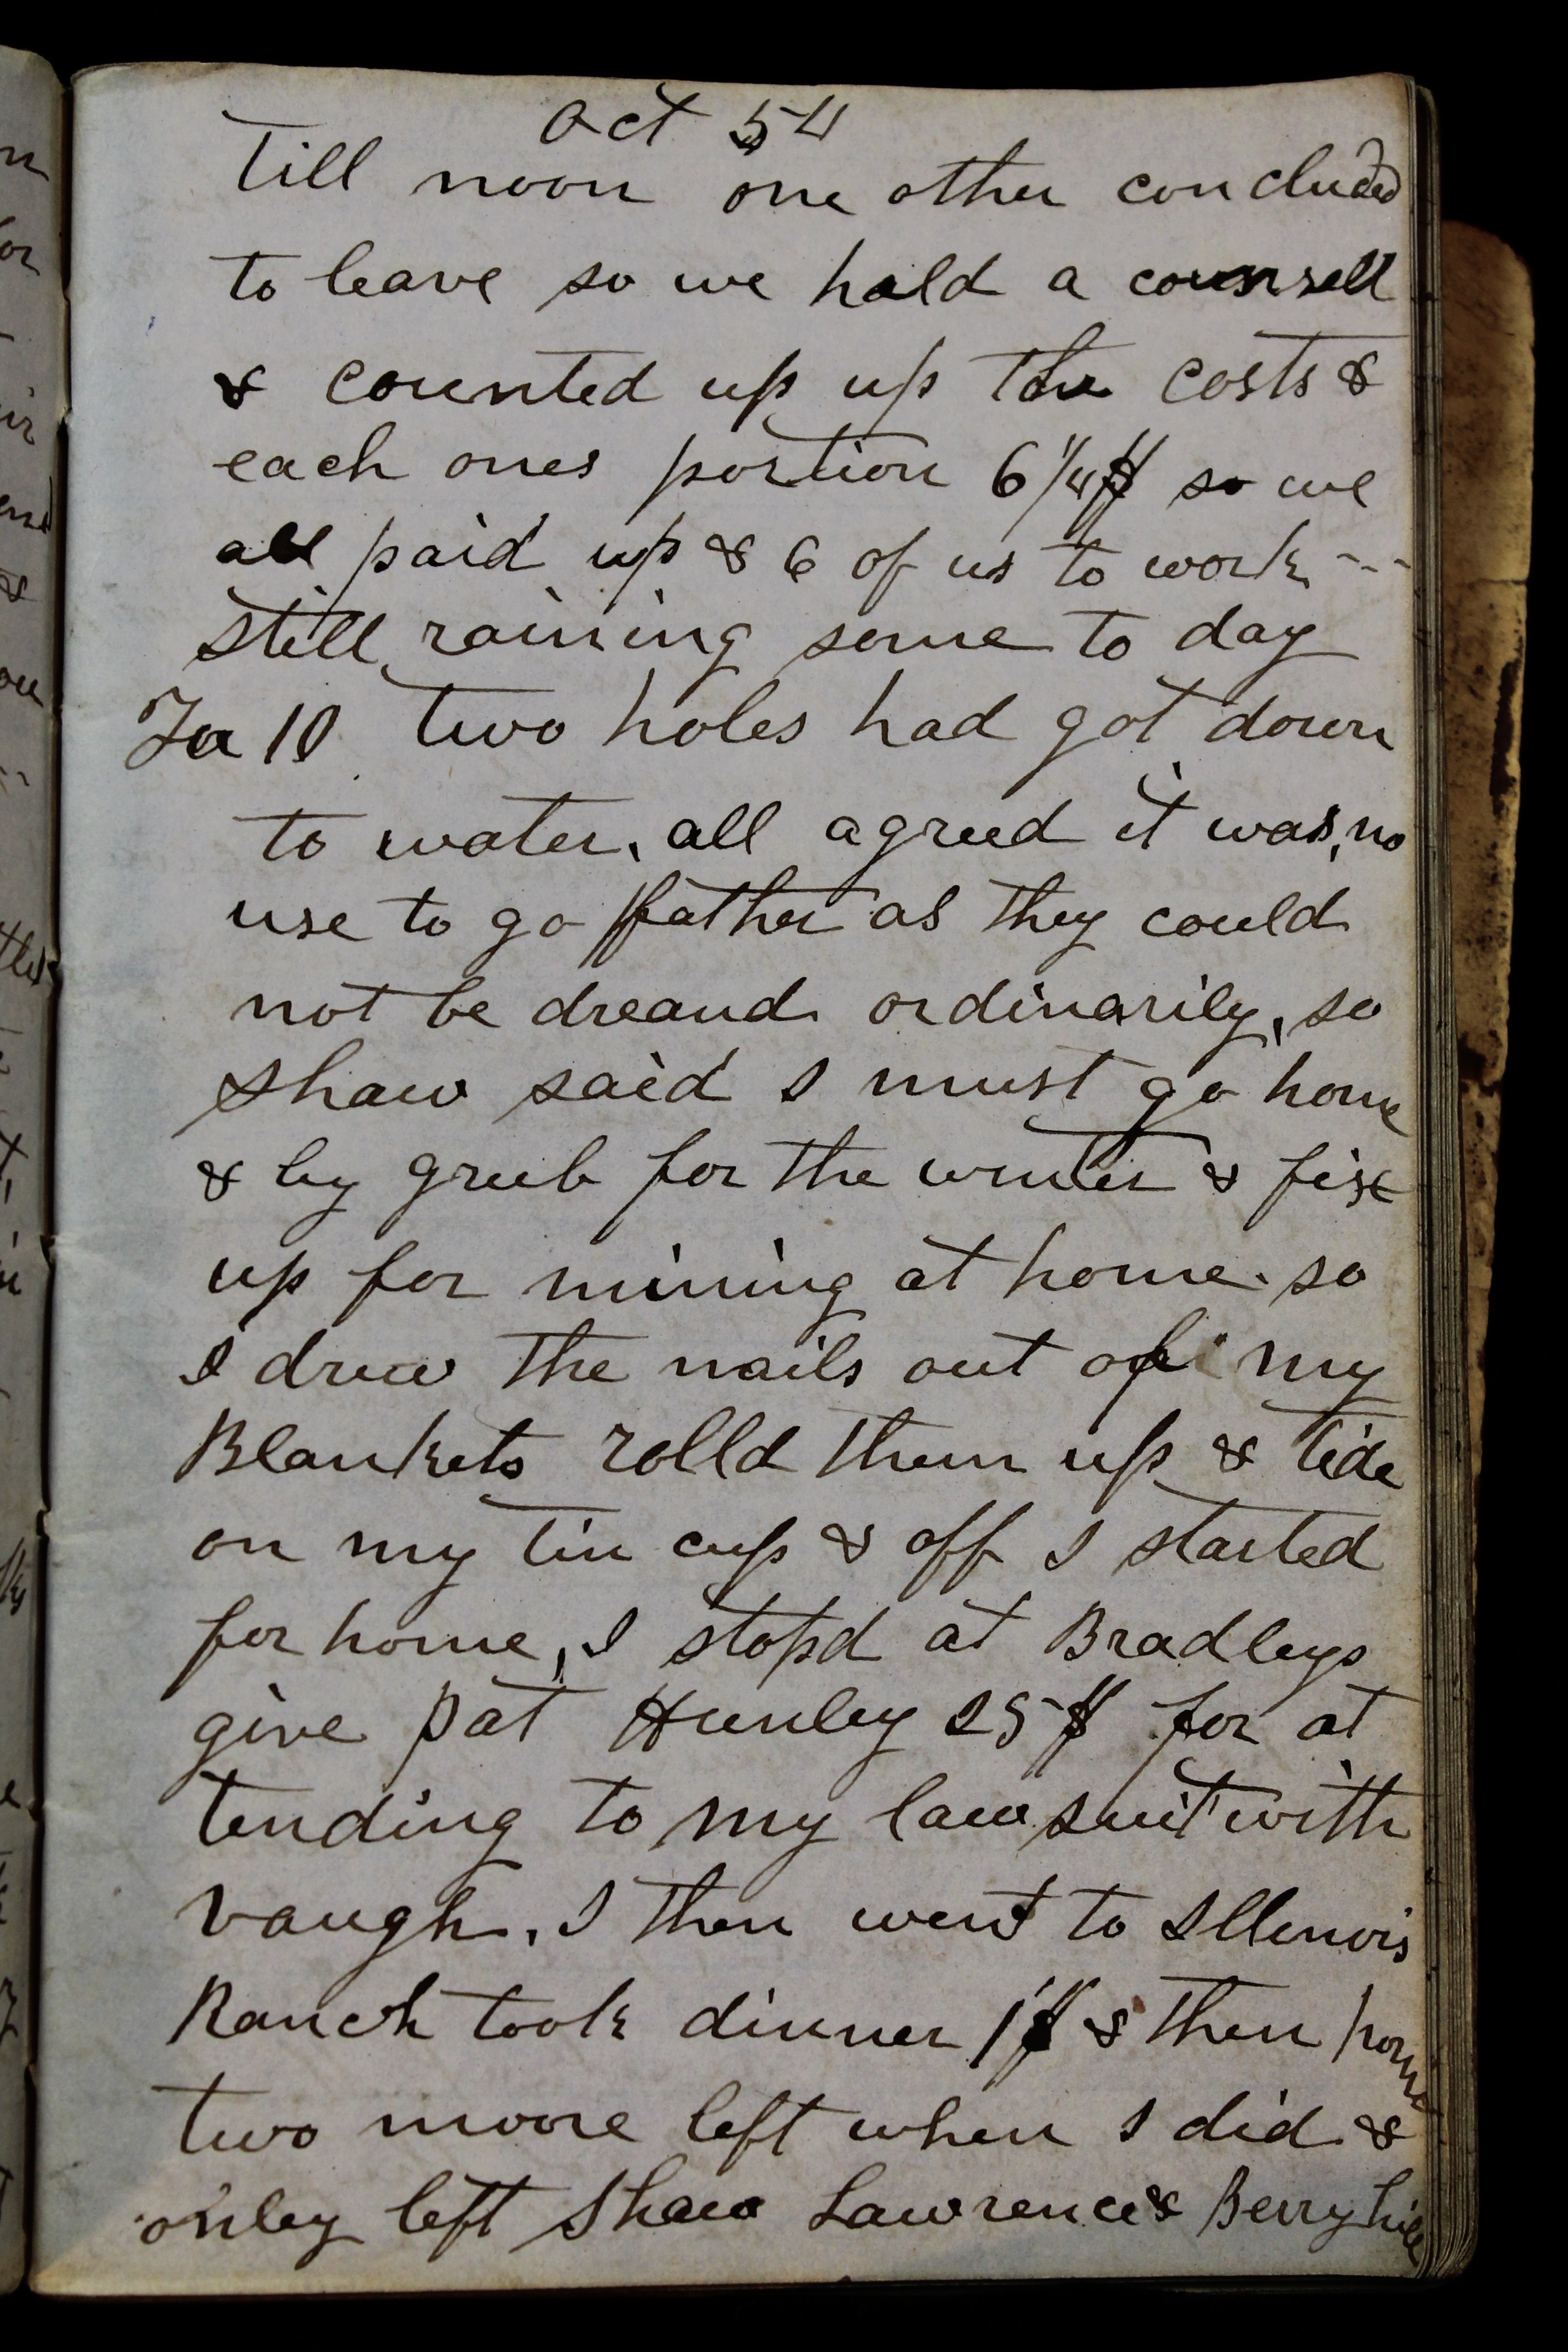 Oct 54
Till noon one other concluded
to leave so we hald a counsell
& counted up up the costs &
each ones portion 6 1/4 $ so we
all paid up & 6 of us to work ---
still raining some to day
Tu 10 two holes had got down
to water, all agreed it was, no
use to go father as they could
not be dreand ordinarily, so
Shaw said I must go home
& by grub for the winter & fix
up for mining at home. so
I drew the nails out of my
Blankets rolld them up & tide
on my tin cup & off I started
for home, I stopd at Bradleys
give Pat Hunley 25 $ for at
tending to my law suit with
vaugh. I then went to Illenois
Ranch took dinner 1 $ & then home
two moore left when I did &
onley left Shaw Lawrence & Berryhill